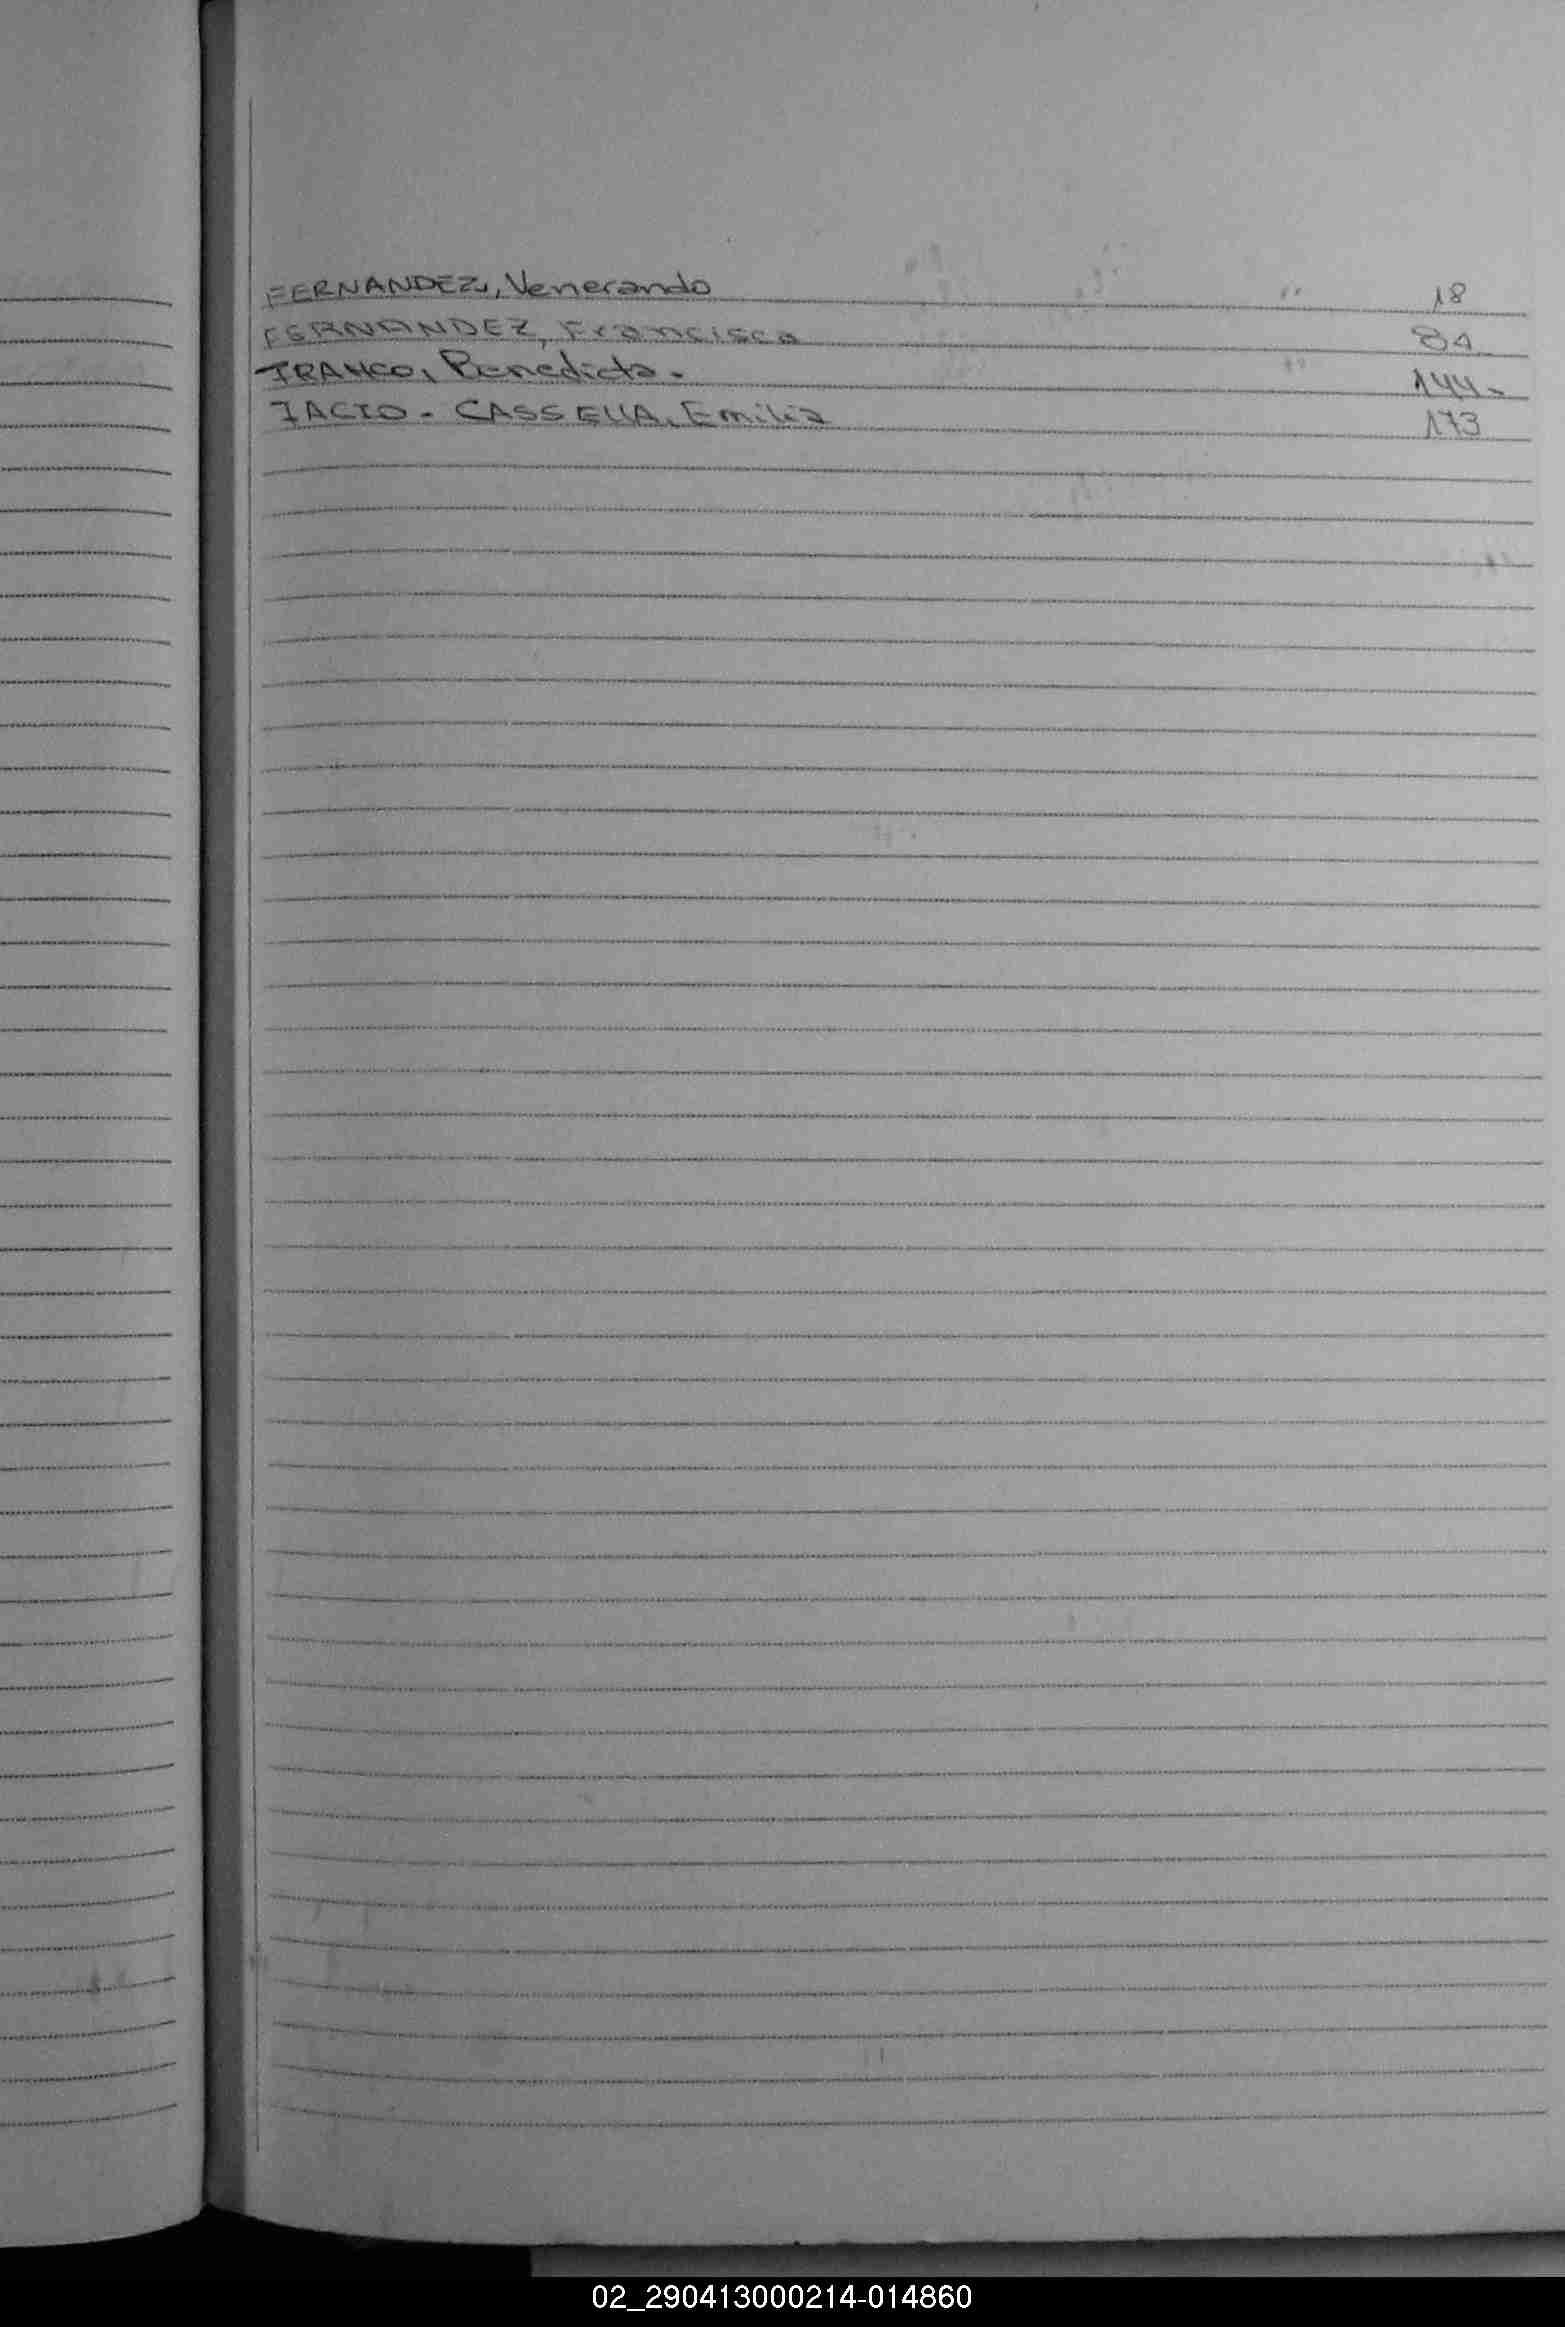 FERNANDEZ, Venerando 18
FERNANDEZ, Francisco 81
FRANCO, Benedicto. 144-
FACIO - CASSELLA, Emilia 173
02_290413000214-014860